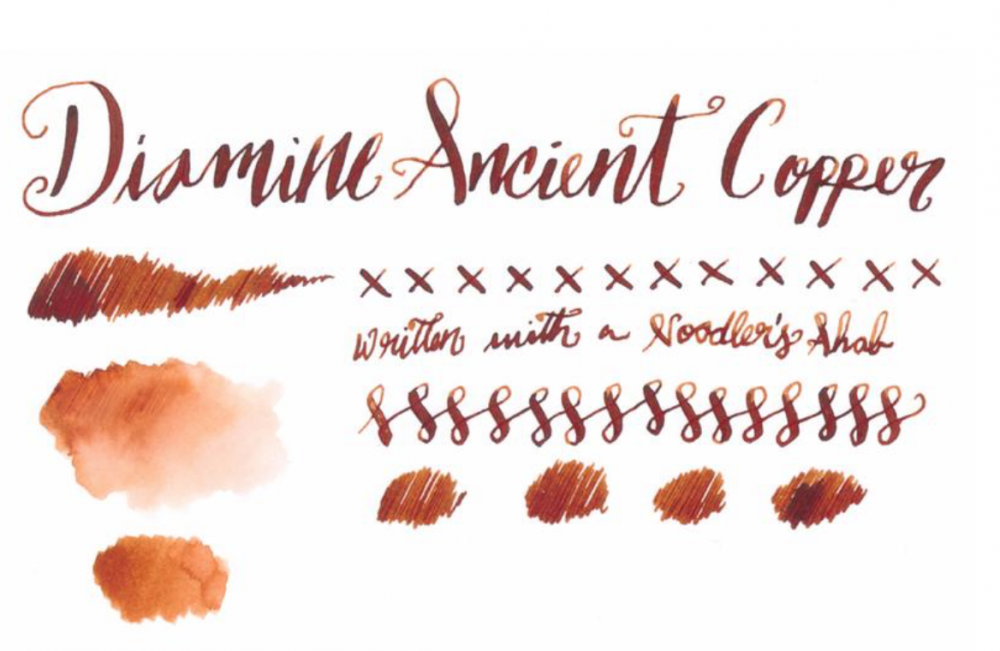 Diamine Ancient Copper
x x x x x x x x x x x x
written with a Noodler's Ahab